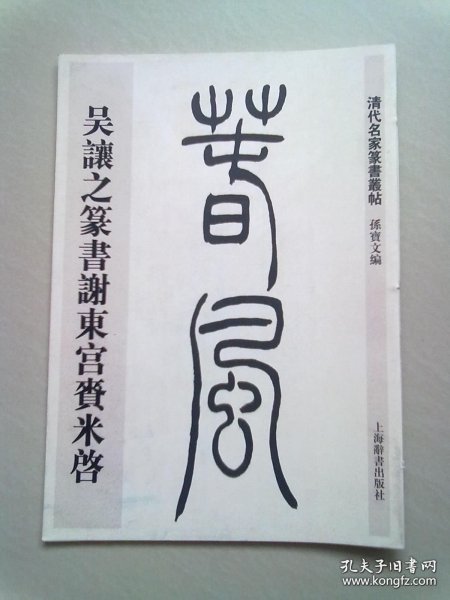 清代名家篆書叢帖
孫寶文编
上海辭書出版社
萅風
吴讓之篆書謝東宫賚米啓
孔夫子旧书网
www.kongfz.com